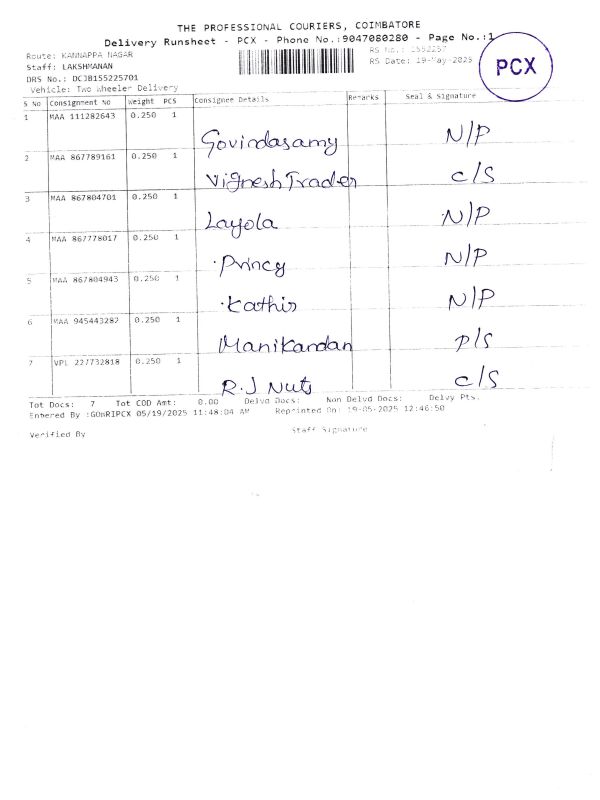 THE PROFESSIONAL COURIERS, COIMBATORE
Delivery Runsheet - PCX - Phone No.:9047080280 - Page No.:1
Route: KANNAPPA NAGAR
RS No.: 1552257
Staff: LAKSHMANAN
RS Date: 19-May-2025
PCX
DRS No.: DCJB155225701
Vehicle: Two Wheeler Delivery
S No Consignment No Weight PCS Consignee Details Remarks Seal & Signature
1 MAA 111282643 0.250 1 Govindasamy N/P
2 MAA 867789161 0.250 1 Vignesh Trader C/S
3 MAA 867804701 0.250 1 Layola N/P
4 MAA 867778017 0.250 1 Princy N/P
5 MAA 867804943 0.250 1 Kathir N/P
6 MAA 945443282 0.250 1 Manikandan P/S
7 VPL 227732818 0.250 1 R.J Nuts C/S
Tot Docs: 7 Tot COD Amt: 0.00 Delvd Docs: Non Delvd Docs: Delvy Pts.
Entered By :GOnRIPCX 05/19/2025 11:48:04 AM Reprinted On: 19-05-2025 12:46:50
Verified By
Staff Signature